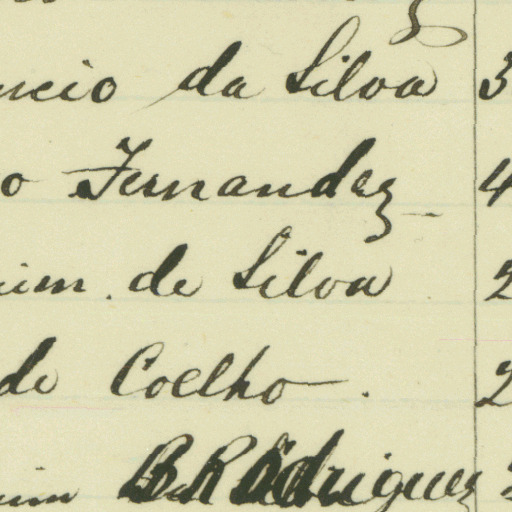 ncio da Silva 3
o Fernandez 4
uim de Silva 2
do Coelho 2
uim Rodriguez 2